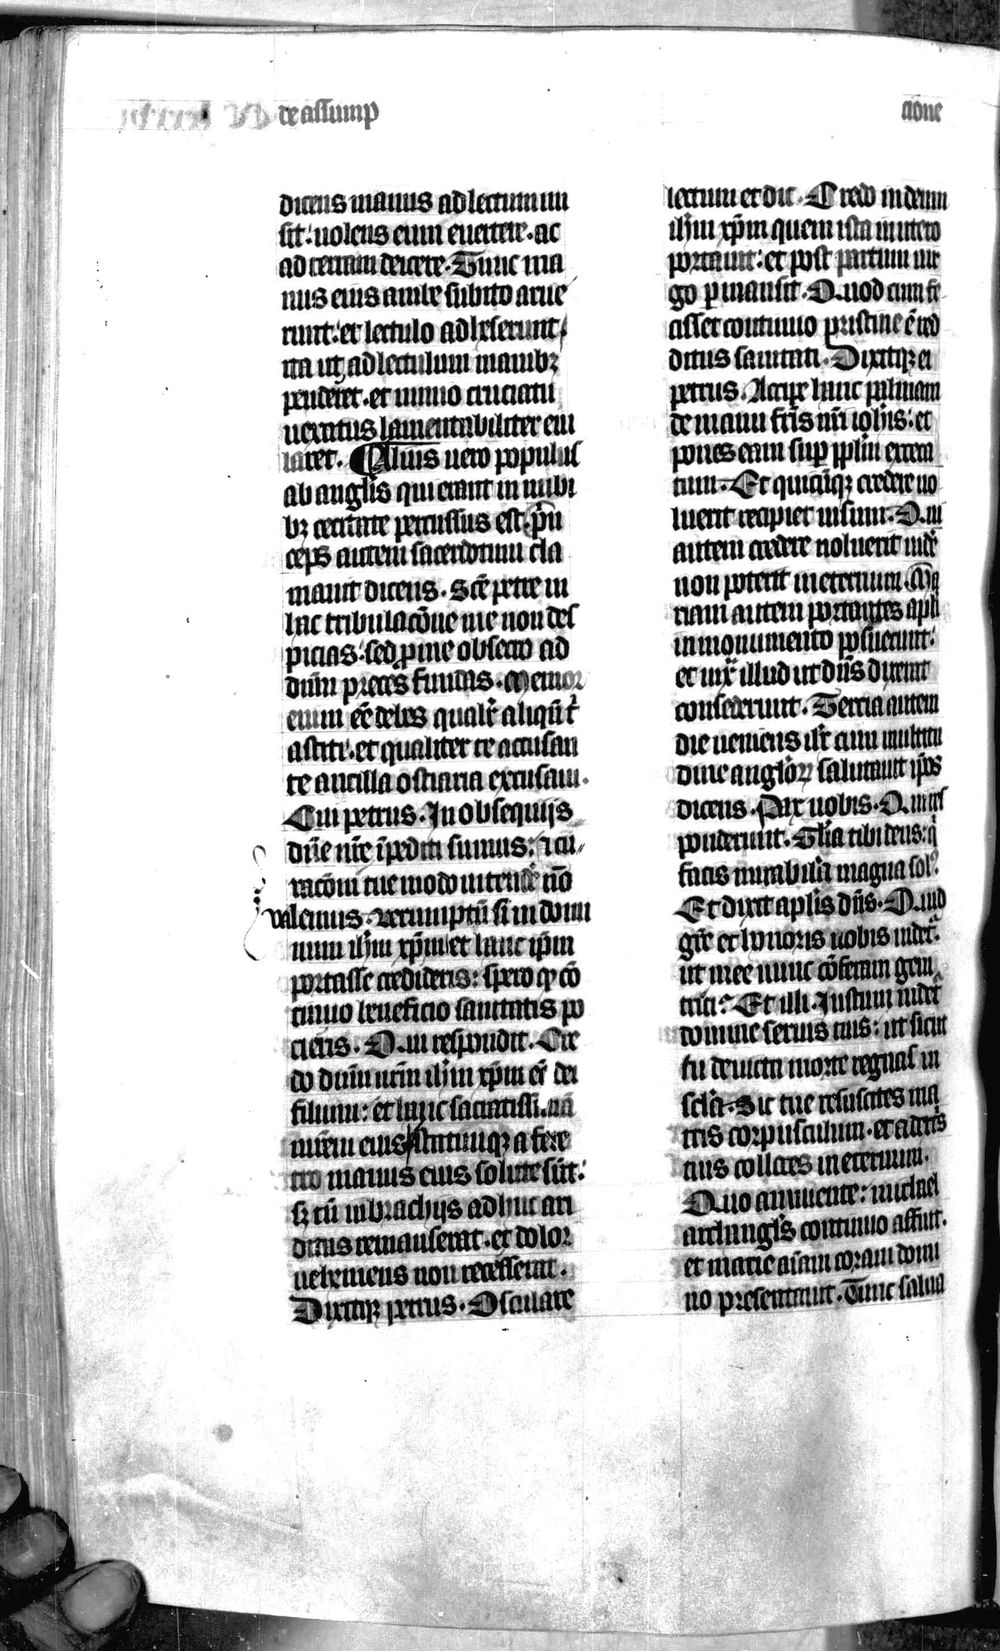 de assump
cione
dicens manus ad lectum mi
sit: uolens eum euertere. ac
ad terram deicere. Tunc ma
nus eius ambe subito arue
runt: et lectulo adheserunt/
ita ut ad lectulum manibꝫ
penderet. et nimio cruciatu
uexatus lamentabiliter eiu
laret. ¶ Alius uero populus
ab angl̄is qui erant in nubi
bꝫ cecitate percussus est. p̄n
ceps autem sacerdotum cla
mauit dicens. Sc̄e petre in
hac tribulac̄oe me non des
picias: sed pro me obsecro ad
dūm preces fundas. Memor
enim eē debes qualr̄ aliqn̄ t̄
astiti. et qualiter te accusan
te ancilla ostiaria excusaui.
Cui petrus. In obsequijs
dn̄e nr̄e īpediti sumus: ⁊ cu//
rac̄oni tue modo intende' nō
ualemus. Verumptn̄ si in domi
num ihm̄ xp̄m et hanc ip̄m
portasse credideris: spero qꝫ cō
tinuo beneficio sanitatis po
cieris. Qui respondit. Cre
do dūm nr̄m ihm̄ xp̄m eē dei
filium: et hanc sacratissimam
mr̄em eius/ statimqꝫ a fere
tro manus eius solute sūt:
sꝫ cū in brachijs adhuc ari
ditas remanserat. et dolor
uehemens non recesserat.
Dixitqꝫ petrus. Osculare
lectum et dic. Credo in deum
ihm̄ xp̄m quem ista in utero
portauit: et post partum uir
go ꝑmansit. Quod cum fe
cisset continuo pristine ē red
ditus sanitati. Dixitqꝫ ei
petrus. Accipe hanc palmam
de manu fr̄is nr̄i ioh̄is: et
pones eam suꝑ pp̄lm exceca
tum. Et quicūqꝫ credere uo
luerit recipiet uisum. Qui
autem credere noluerit uide'
non poterit in eternum. Ma
riam autem portantes apl̄i
in monumento posuerunt:
et iux̄ illud ut dn̄s dixerat
consederunt. Tercia autem
die ueniens ih̄c cum multitu
dine angl̄oꝝ salutauit ip̄os
dicens. Pax uobis. Qui res
ponderunt. Gl̄ia tibi deus: q̄
facis mirabil̄ia magna sol'.
Et dixit apl̄is dn̄s. Quid
gr̄e et honoris uobis uidet':
ut mee nunc cōferam geni
trici? Et illi. Iustum uidet'
domine seruis tuis: ut sicut
tu deuicta morte regnas in
sc̄la. Sic tue resuscites ma
tris corpusculum. et a dextris
tuis colloces in eternum.
Quo annuente: michael
archangl̄s continuo affuit.
et marie aīam coram domi
no presentauit. Tunc salua